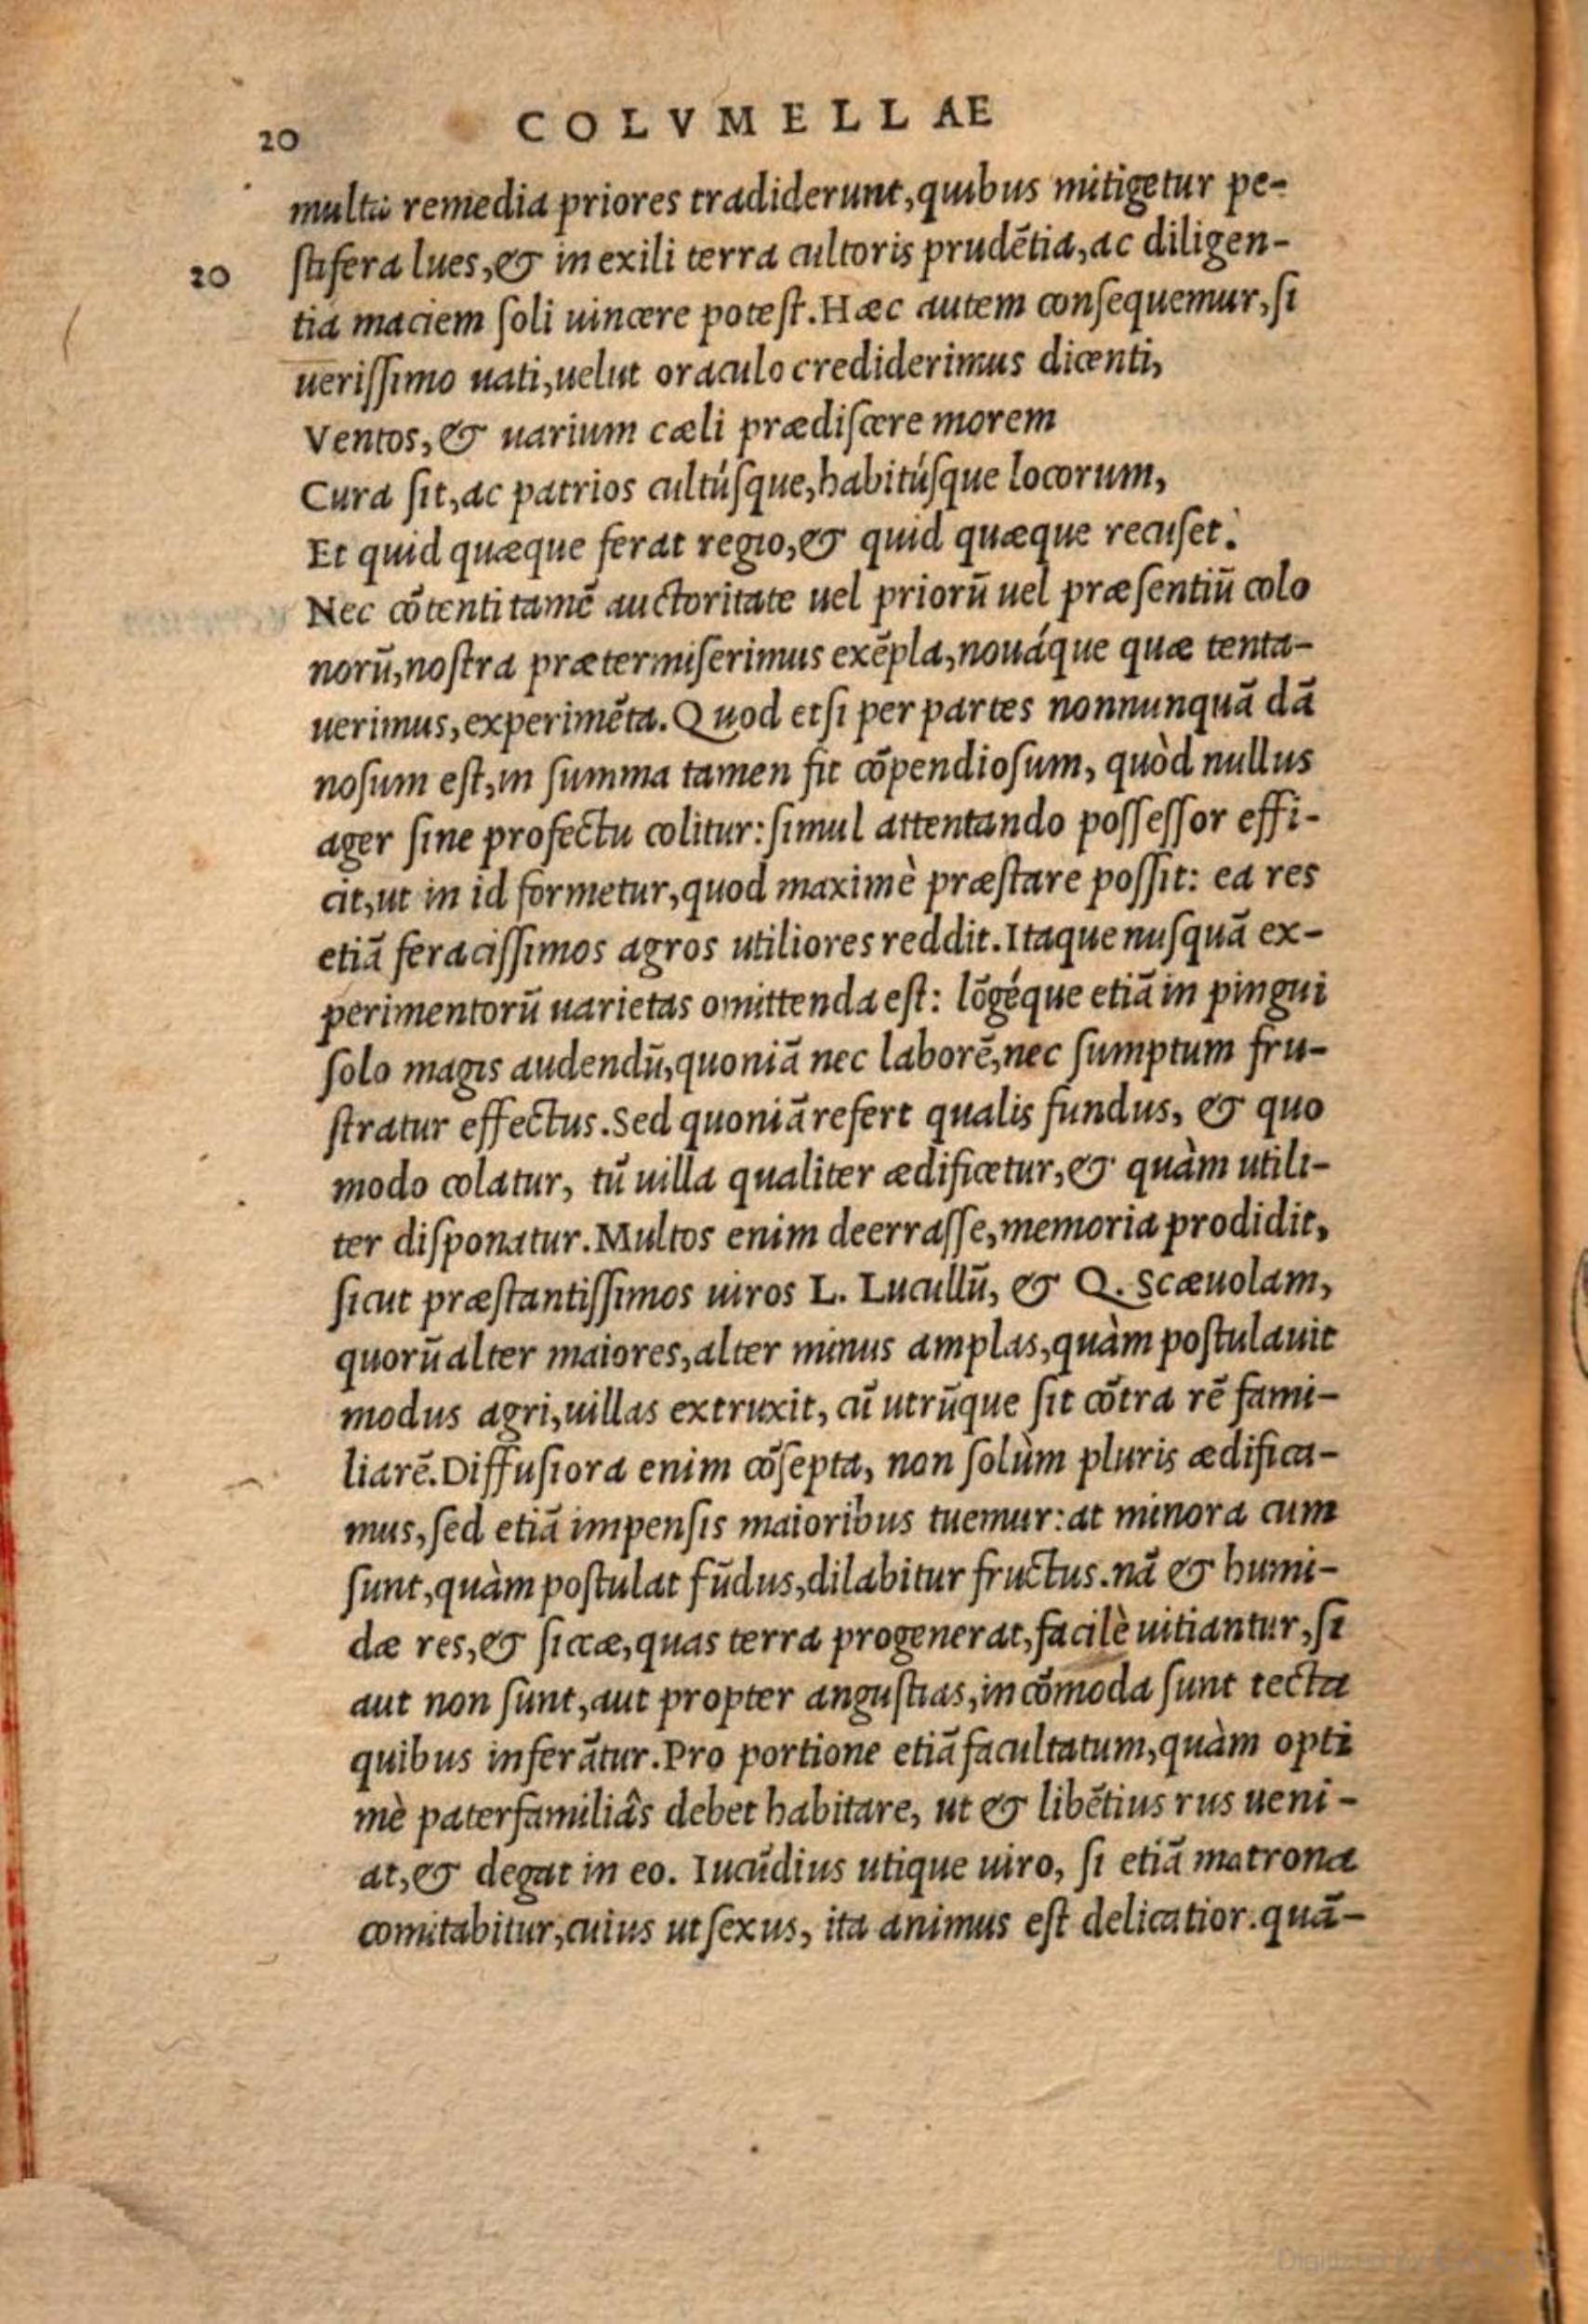 20 COLVMELLAE
multa remedia priores tradiderunt, quibus mitigetur pe-
20 stifera lues, & in exili terra cultoris prudẽtia, ac diligen-
tia maciem soli uincere potest. Hæc autem consequemur, si
uerissimo uati, uelut oraculo crediderimus dicenti,
Ventos, & uarium cæli prædiscere morem
Cura sit, ac patrios cultúsque, habitúsque locorum,
Et quid quæque ferat regio, & quid quæque recuset.
Nec cõtenti tamẽ auctoritate uel priorũ uel præsentiũ colo
norũ, nostra prætermiserimus exẽpla, nouáque quæ tenta-
uerimus, experimẽta. Quod etsi per partes nonnunquã dã
nosum est, in summa tamen fit cõpendiosum, quòd nullus
ager sine profectu colitur: simul attentando possessor effi-
cit, ut in id formetur, quod maximè præstare possit: ea res
etiã feracissimos agros utiliores reddit. Itaque nusquã ex-
perimentorũ uarietas omittenda est: lõgéque etiã in pingui
solo magis audendũ, quoniã nec laborẽ, nec sumptum fru-
stratur effectus. Sed quoniã refert qualis fundus, & quo
modo colatur, tũ uilla qualiter ædificetur, & quàm utili-
ter disponatur. Multos enim deerrasse, memoria prodidit,
sicut præstantissimos uiros L. Lucullũ, & Q. Scæuolam,
quorũ alter maiores, alter minus amplas, quàm postulauit
modus agri, uillas extruxit, cũ utrũque sit cõtra rẽ fami-
liarẽ. Diffusiora enim cõsepta, non solùm pluris ædifica-
mus, sed etiã impensis maioribus tuemur: at minora cum
sunt, quàm postulat fũdus, dilabitur fructus. nã & humi-
dæ res, & siccæ, quas terra progenerat, facilè uitiantur, si
aut non sunt, aut propter angustias, incõmoda sunt tecta
quibus inferãtur. Pro portione etiã facultatum, quàm opti
mè paterfamiliâs debet habitare, ut & libẽtius rus ueni-
at, & degat in eo. Iucũdius utique uiro, si etiã matrona
comitabitur, cuius ut sexus, ita animus est delicatior. quã-